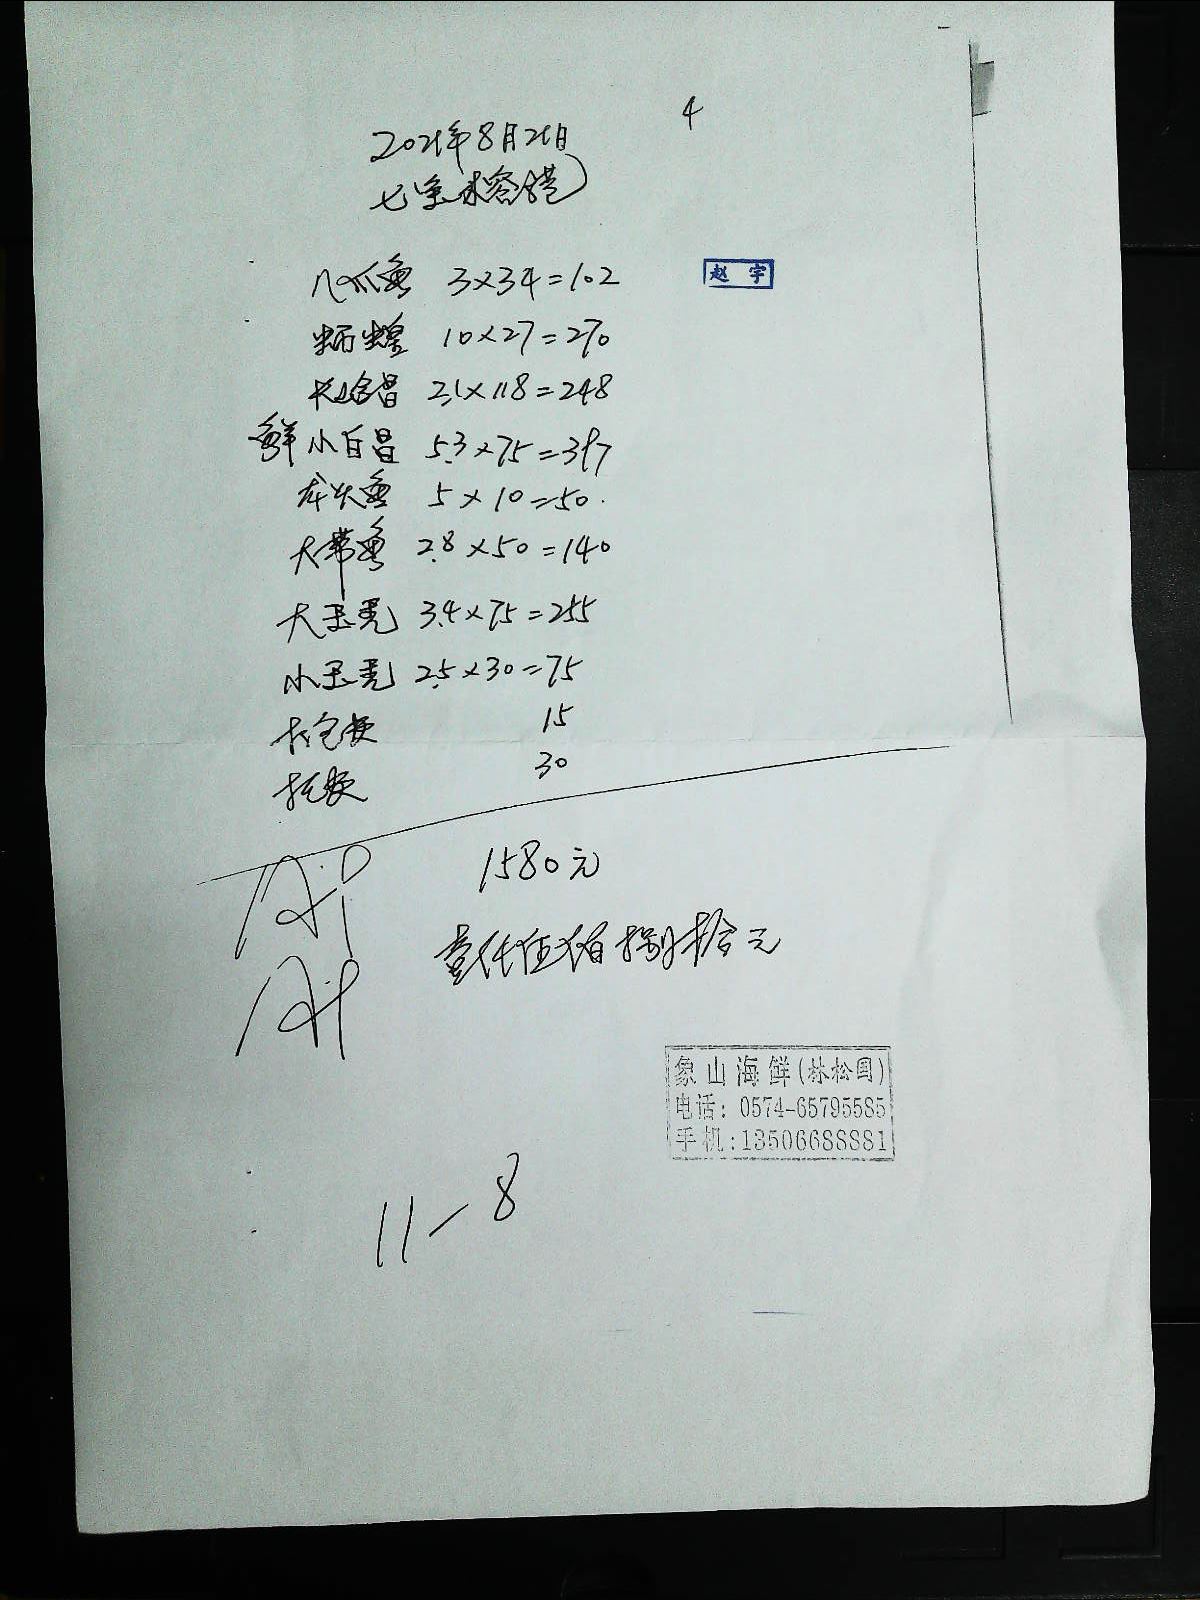 4
2021年8月21日
八爪鱼 3×34=102
10×27=270
昌 2.1×118=248
鲜小白昌 5.3×75=397
龙头鱼 5×10=50
大带鱼 2.8×50=140
大玉秃 3.4×75=255
小玉秃 2.5×30=75
打包费 15
托费 30
赵宇
1580元
壹仟伍佰捌拾元
象山海鲜(林松国)
电话: 0574-65795585
手机:13506688881
11-8